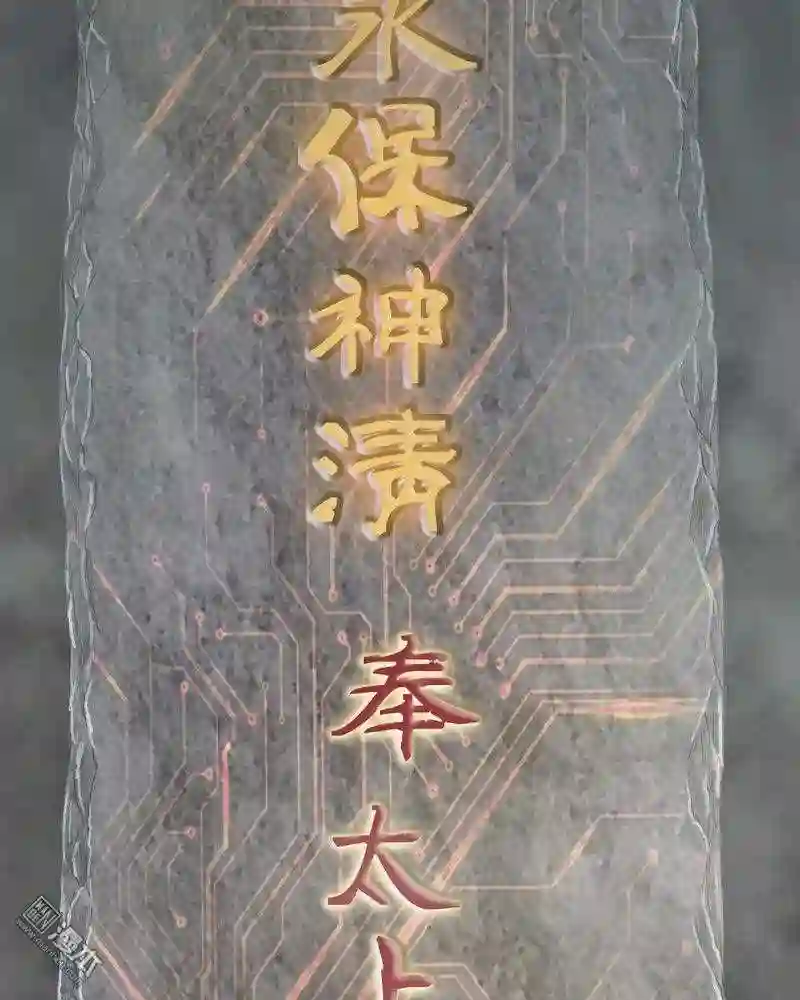 永保神清
奉太上
漫本